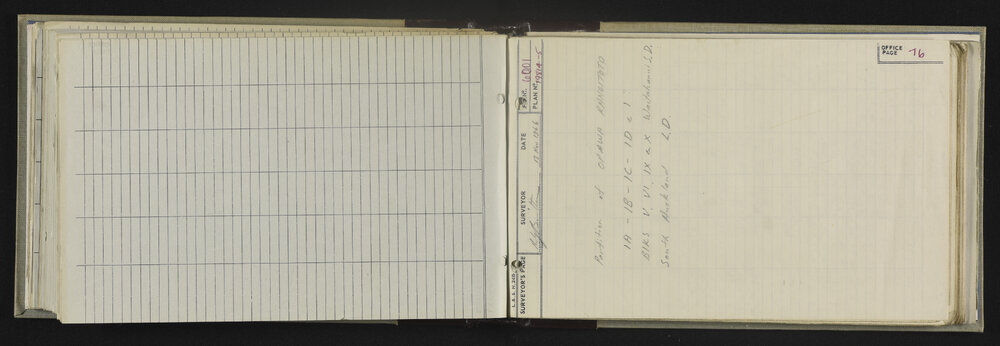 OFFICE
PAGE 76
L. & S. H. 260
SURVEYOR'S PAGE
SURVEYOR
DATE 17 Nov 1966
F.B. No. 6001
PLAN No.
Partition of OPAWA RANGITOTO
1A - 1B - 1C - 1D & 1
Blks V. VI. IX & X S.D.
South Auckland L.D.